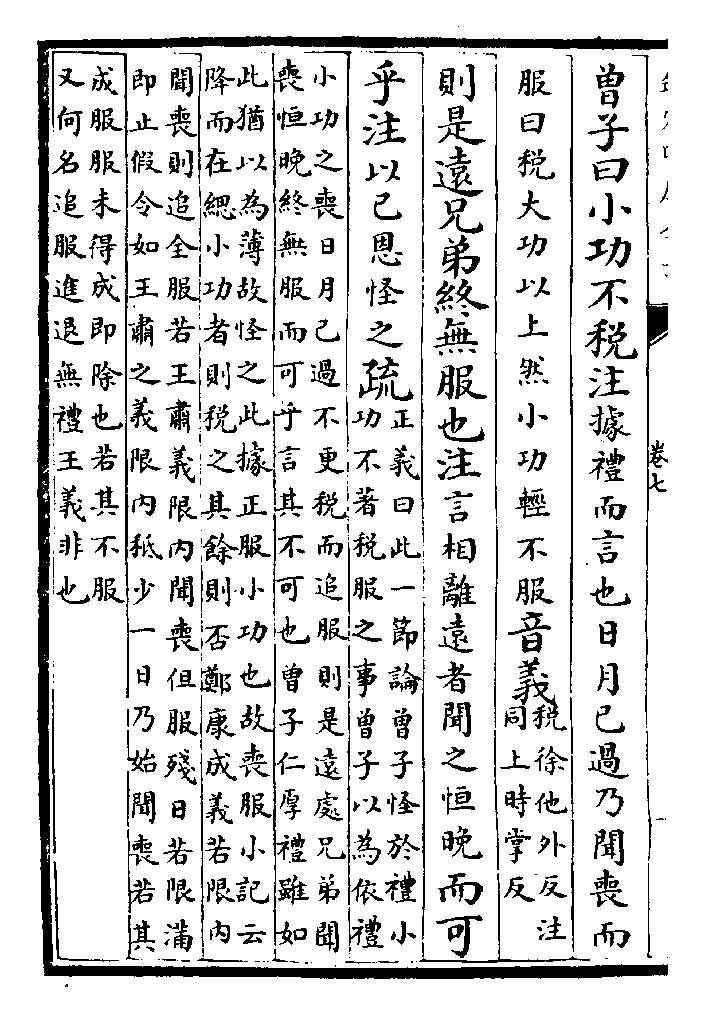 卷七
曾子曰小功不税注據禮而言也日月已過乃聞喪而
服曰税大功以上然小功輕不服音義税徐他外反注
同上時掌反
則是遠兄弟終無服也注言相離遠者聞之恒晚而可
乎注以已恩怪之疏正義曰此一節論曾子怪於禮小
功不著税服之事曾子以為依禮
小功之喪日月已過不更税而追服則是遠處兄弟聞
喪恒晚終無服而可乎言其不可也曾子仁厚禮雖如
此猶以為薄故怪之此據正服小功也故喪服小記云
降而在緦小功者則税之其餘則否鄭康成義若限内
聞喪則追全服若王肅義限内聞喪但服殘日若限滿
即止假令如王肅之義限内秪少一日乃始聞喪若其
成服服未得成即除也若其不服
又何名追服進退無禮王義非也